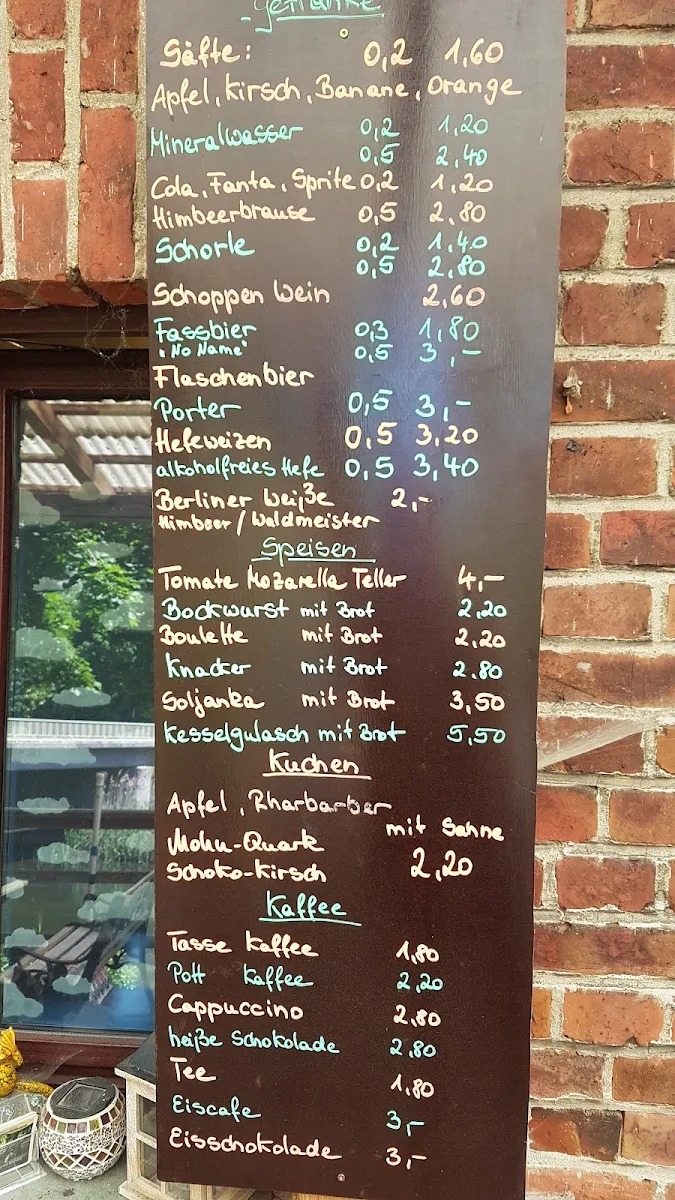 Getränke
Säfte: 0,2 1,60
Apfel, Kirsch, Banane, Orange
Mineralwasser 0,2 1,20
0,5 2,40
Cola, Fanta, Sprite 0,2 1,20
Himbeerbrause 0,5 2,80
Schorle 0,2 1,40
0,5 2,80
Schoppen Wein 2,60
Fassbier 0,3 1,80
"No Name" 0,5 3,-
Flaschenbier
Porter 0,5 3,-
Hefeweizen 0,5 3,20
alkoholfreies Hefe 0,5 3,40
Berliner Weiße 2,-
Himbeer/Waldmeister
Speisen
Tomate Mozarella Teller 4,-
Bockwurst mit Brot 2,20
Boulette mit Brot 2,20
Knacker mit Brot 2.80
Soljanka mit Brot 3,50
Kesselgulasch mit Brot 5,50
Kuchen
Apfel, Rharbarber
mit Sahne
Mohn-Quark
Schoko-Kirsch 2,20
Kaffee
Tasse Kaffee 1,80
Pott Kaffee 2,20
Cappuccino 2,80
heiße Schokolade 2,80
Tee 1,80
Eiscafe 3,-
Eisschokolade 3,-